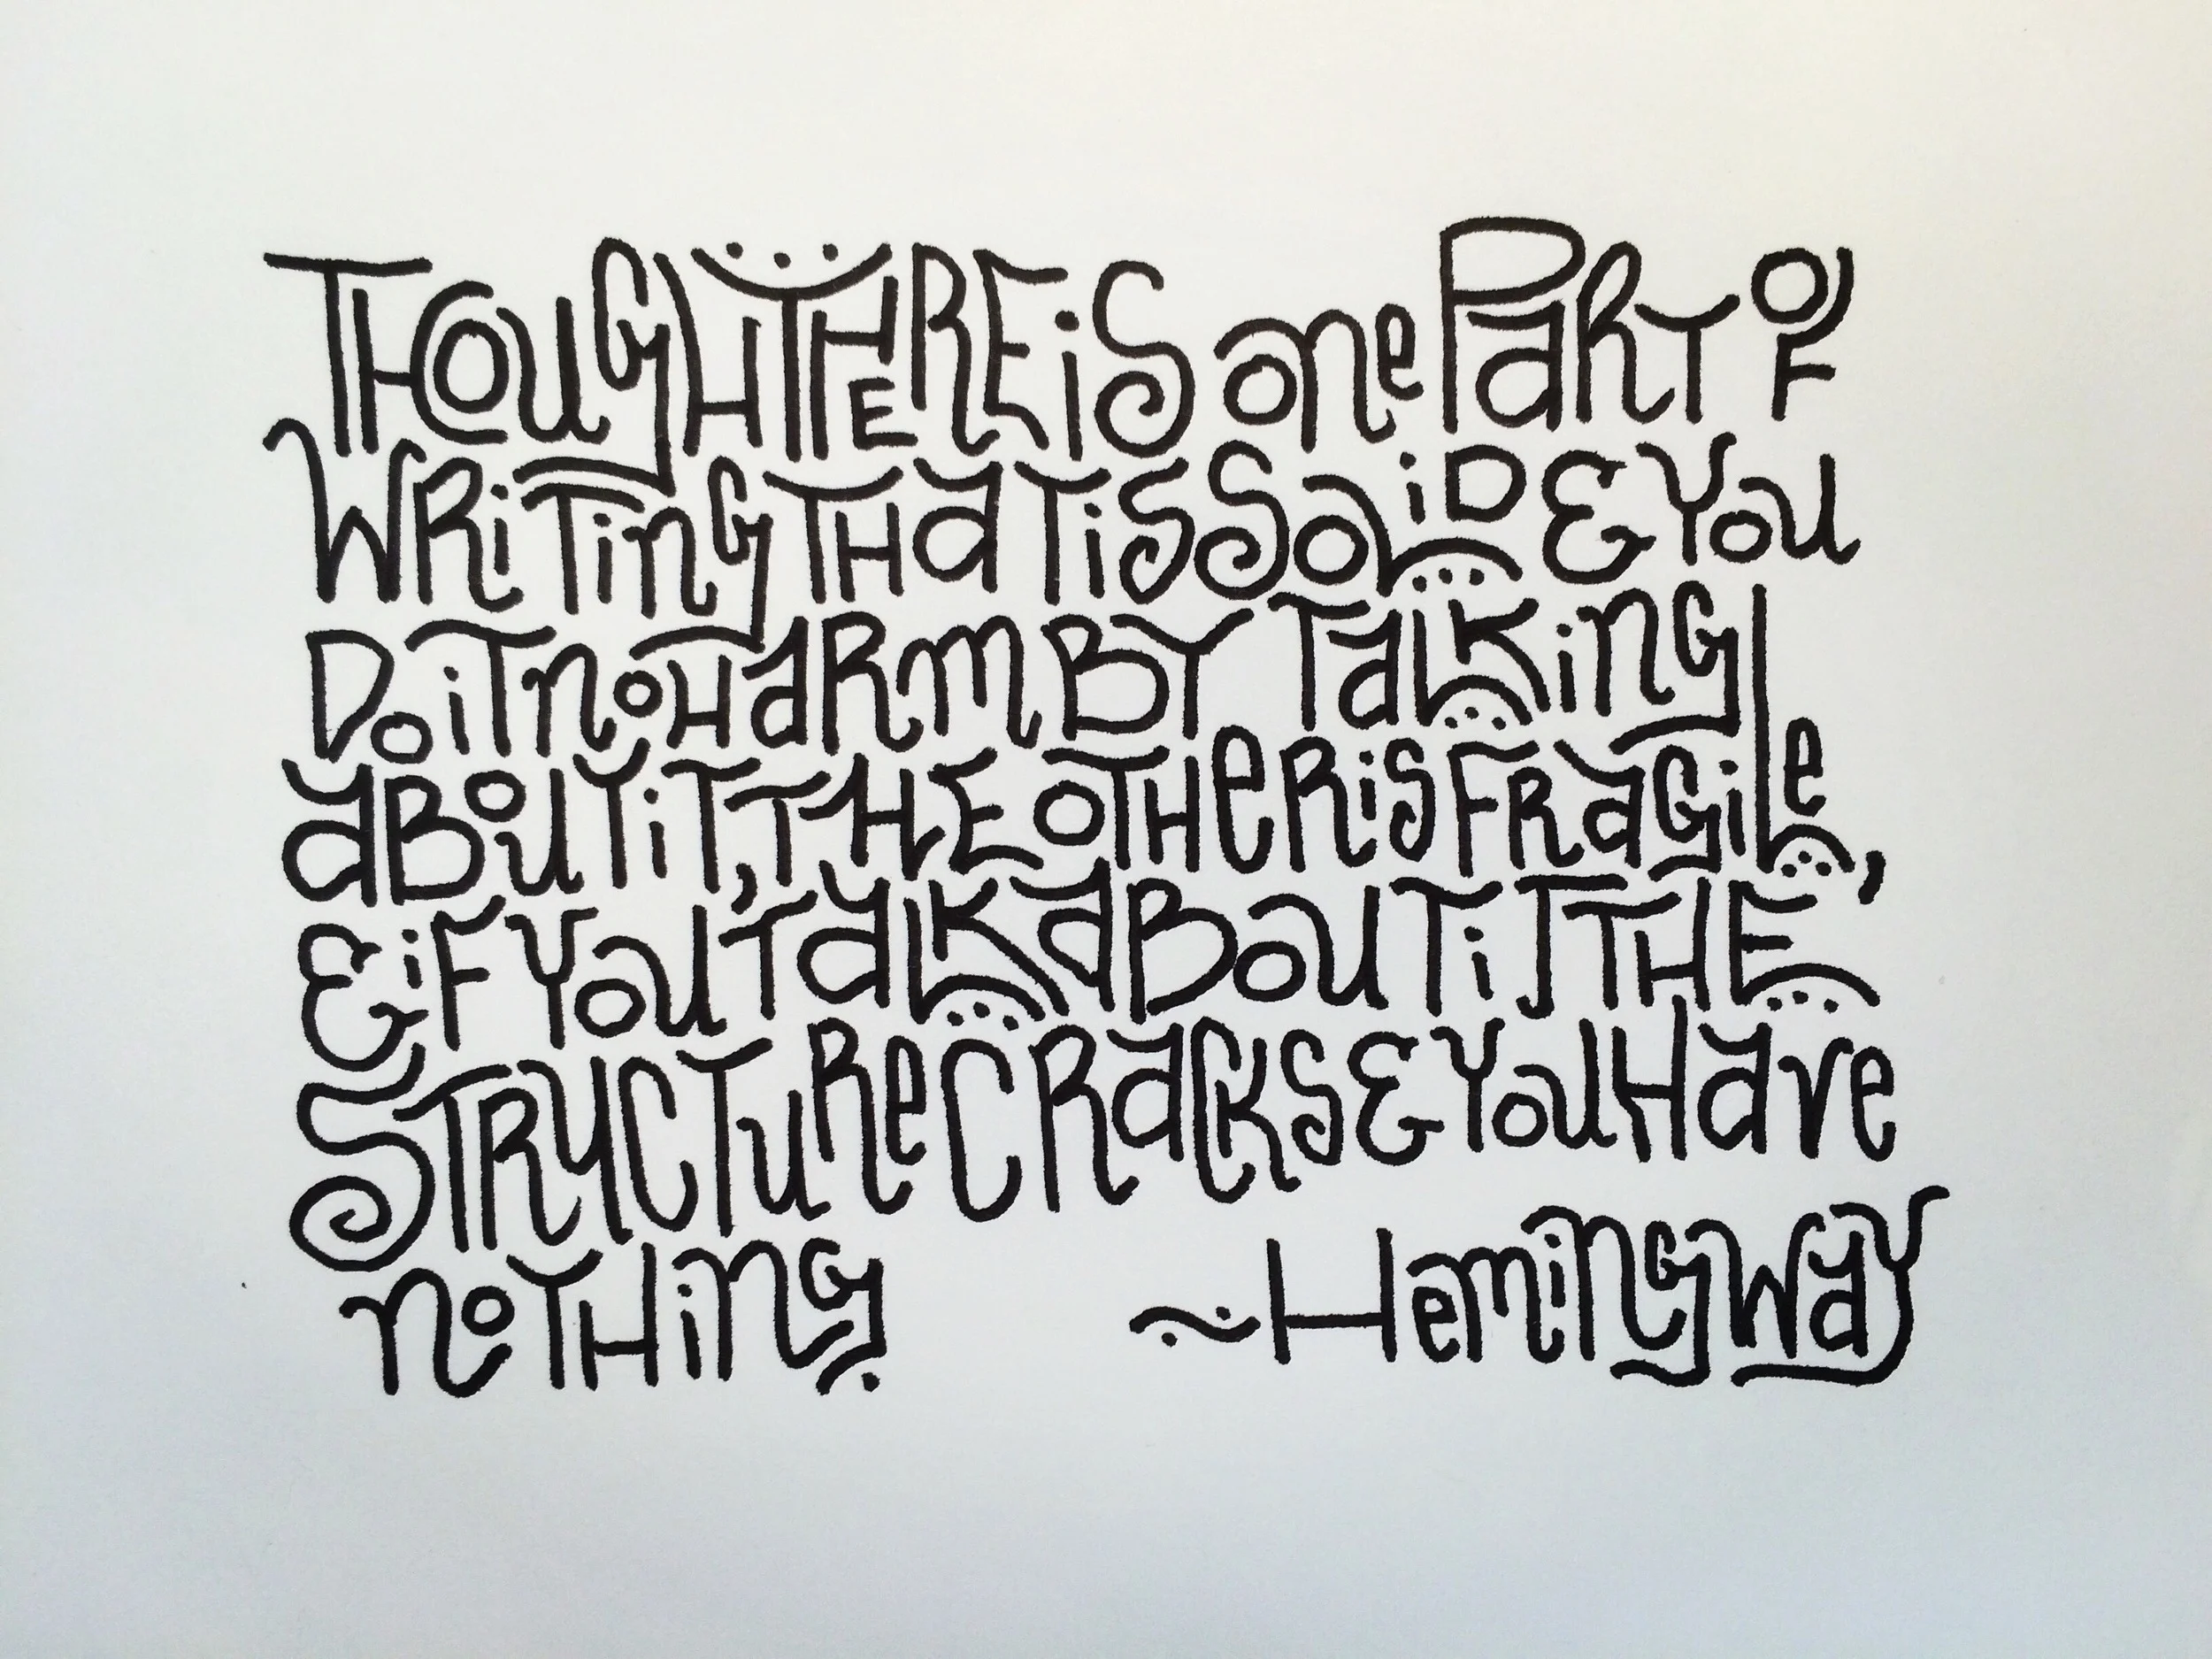 THOUGH THERE IS one PART OF
WRITING THAT IS SAID & YOU
DO IT NO HARM BY TALKING
ABOUT IT, THE OTHER IS FRAGILE,
& IF YOU TALK ABOUT IT THE
STRUCTURE CRACKS & YOU HAVE
NOTHING.
~HEMINGWAY